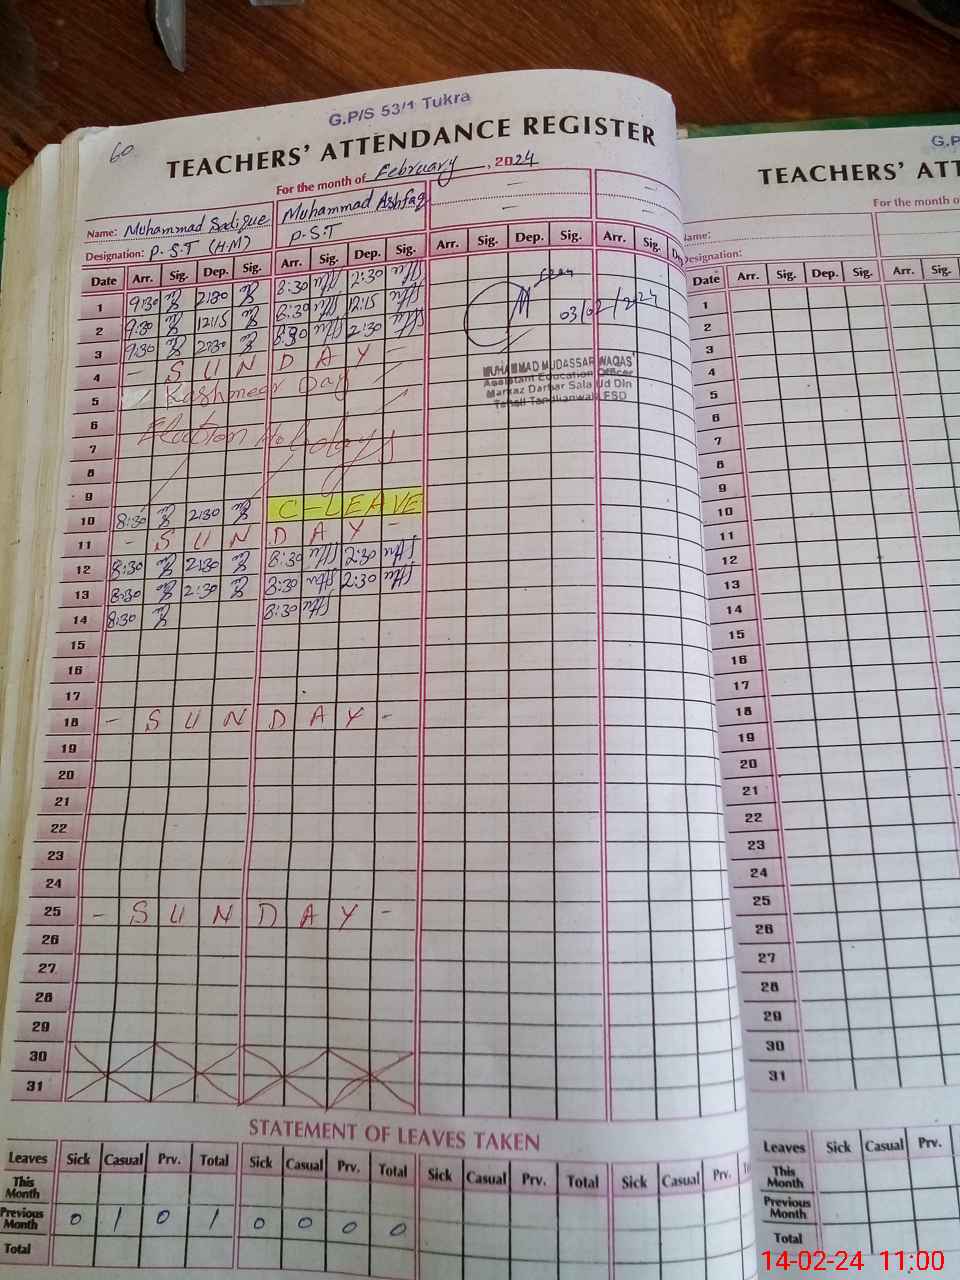 60
G.P/S 53/1 Tukra
TEACHERS' ATTENDANCE REGISTER
For the month of February, 2024
Name: Muhammad Sadique Muhammad Ashfaq — —
Designation: P.S.T (H.M) P.S.T — —
Date Arr. Sig. Dep. Sig. Arr. Sig. Dep. Sig. Arr. Sig. Dep. Sig. Arr. Sig. Dep.
1 9:30 2:30 8:30 2:30
2 9:30 12:15 8:30 12:15
3 9:30 2:30 8:30 2:30
03/02/2024
MUHAMMAD MUDASSAR WAQAS
Assistant Education Officer
Markaz Darbar Sala Ud Din
Tehsil Tandlianwala FSD
4 - S U N D A Y -
5 Kashmeer Day
6
7 Election Holidays
8
9
10 8:30 2:30 C-LEAVE
11 - S U N D A Y -
12 8:30 2:30 8:30 2:30
13 8:30 2:30 8:30 2:30
14 8:30 8:30
15
16
17
18 - S U N D A Y -
19
20
21
22
23
24
25 - S U N D A Y -
26
27
28
29
30
31
STATEMENT OF LEAVES TAKEN
Leaves Sick Casual Prv. Total Sick Casual Prv. Total Sick Casual Prv. Total Sick Casual Prv.
This Month
Previous Month 0 1 0 1 0 0 0 0
Total
G.P
TEACHERS' ATT
For the month o
Name:
Designation:
Date Arr. Sig. Dep. Sig. Arr. Sig.
1
2
3
4
5
6
7
8
9
10
11
12
13
14
15
16
17
18
19
20
21
22
23
24
25
26
27
28
29
30
31
Leaves Sick Casual Prv.
This Month
Previous Month
Total
14-02-24 11:00